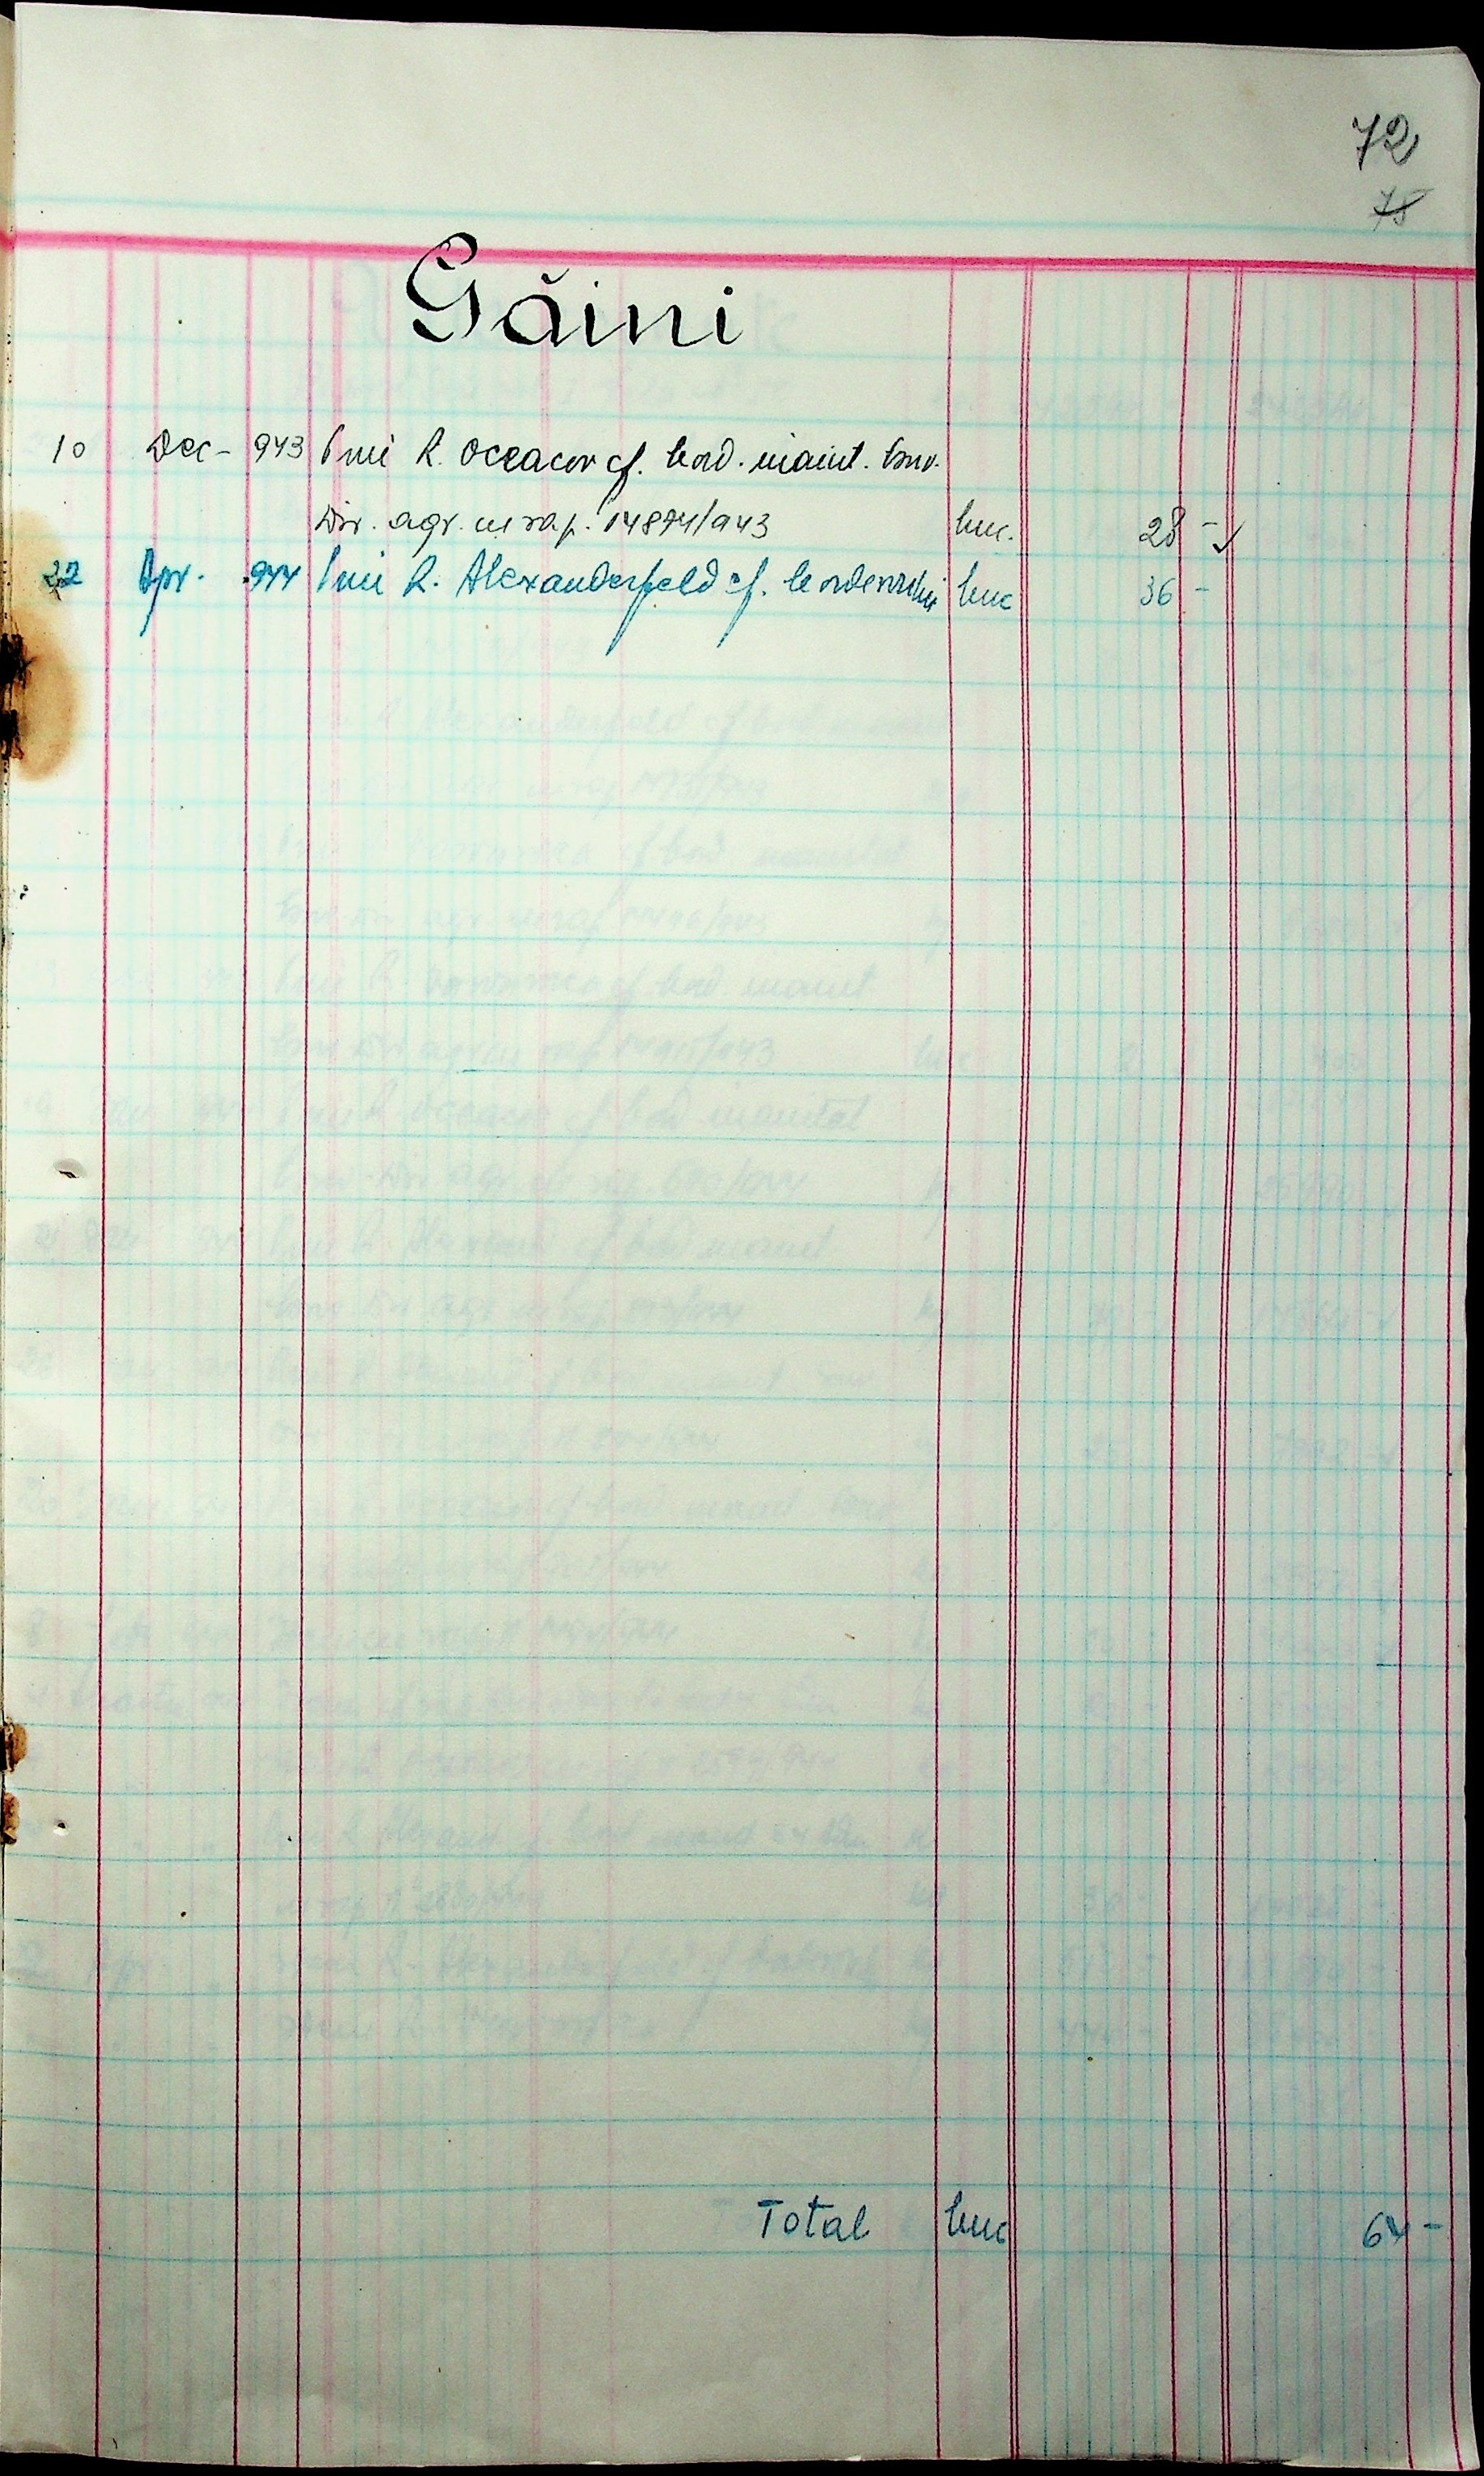 72
75
Găini
10 Dec- 943 Prin R. Oceacov cf. bord. inaint.
Dir. agr. cu rap. 14894/943 buc. 28 -
22 Apr. 944 Prin R. Alexanderfeld cf. borderoului buc 36 -
Total buc 64 -